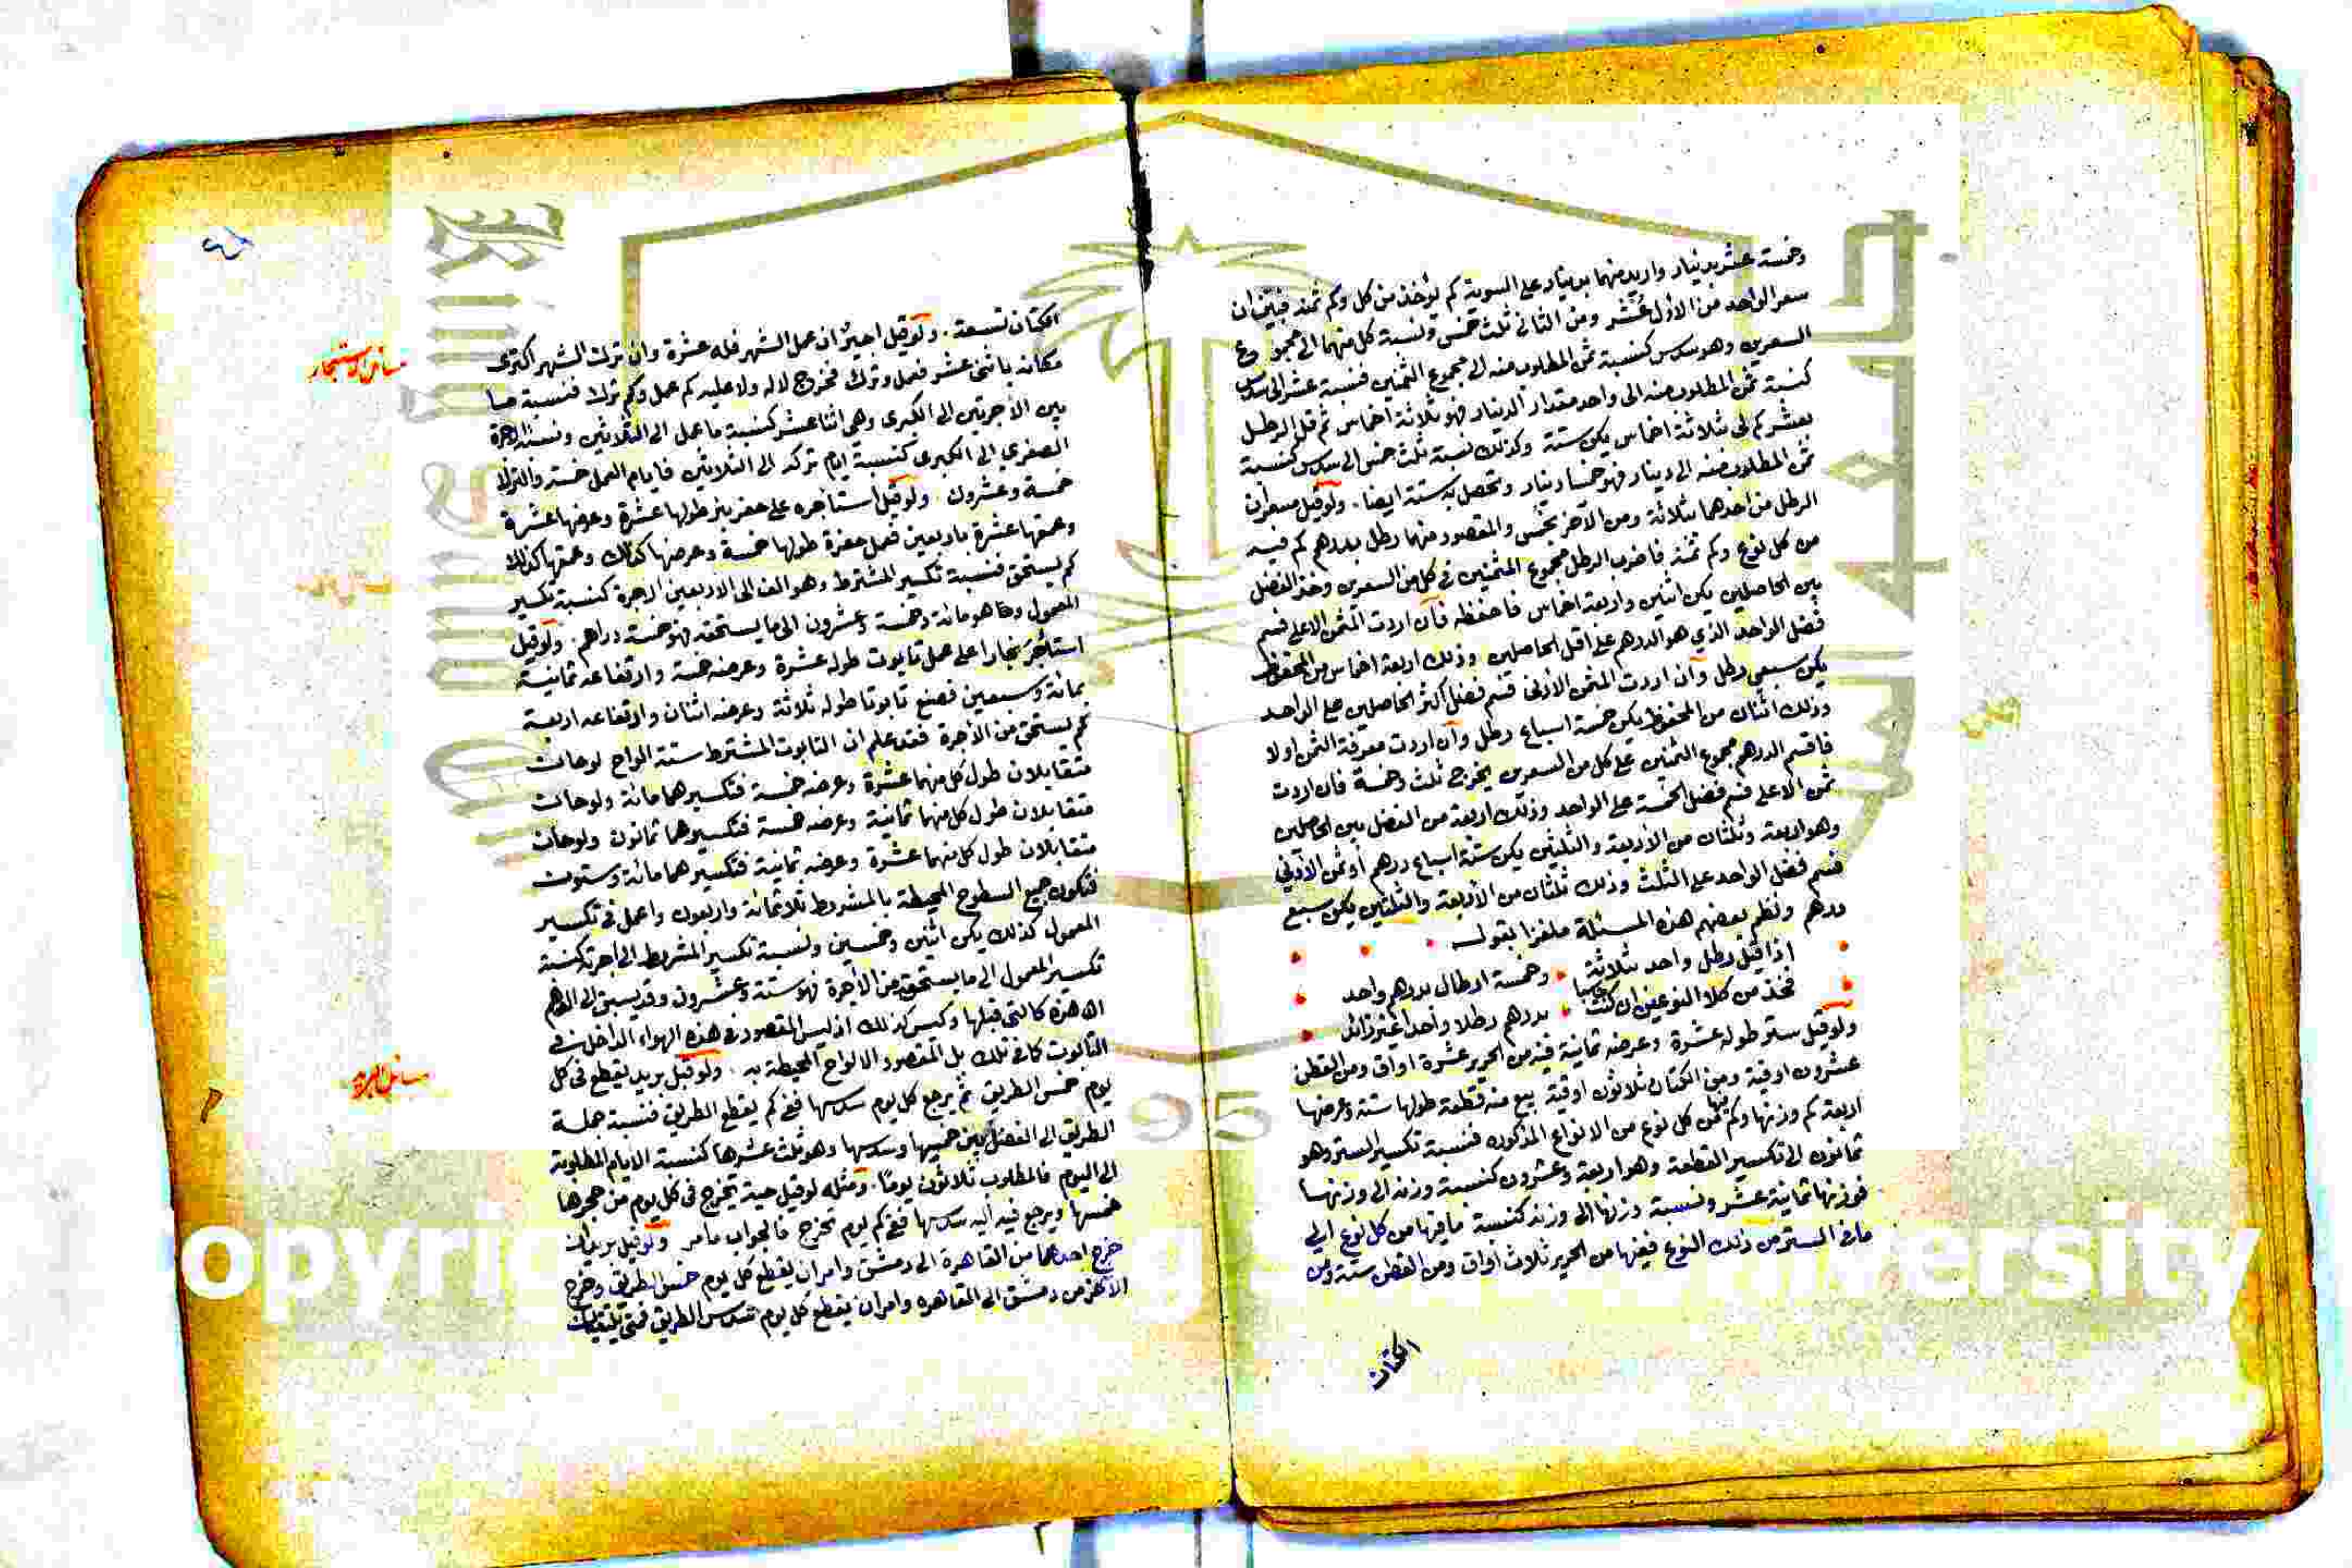 وخمسة عشر بدينار واريد منهما بدينار على السوية كم يؤخذ من كل وكم ثمنه فبين ان
سعر الواحد من الأول عُشر ومن الثاني ثلث خمس ونسبة كل منهما الى مجموع
السعرين وهو سدس كنسبة ثمن المطلوب منه الى مجموع الثمنين فنسبة عشر الى سدس
كنسبة ثمن المطلوب منه الى واحد مقدار الدينار فهو ثلاثة اخماس ثم قل الرطل
بعشر كم لي بثلاثة اخماس يكن ستة وكذلك نسبة ثلث خمس الى سدس كنسبة
ثمن المطلوب منه الى دينار فهو خمسا دينار وتحصل به ستة ايضا . ولو قيل سعران
الرطل من احدهما بثلاثة ومن الآخر بخمس والمقصود منهما رطل بدرهم كم فيه
من كل نوع وكم ثمنه فاضرب الرطل مجموع المثمنين في كل من السعرين وخذ الفضل
بين الحاصلين يكن اثنين واربعة اخماس فاحفظه فان اردت المثمن الاعلى فسم
فضل الواحد الذي هو الدرهم على اقل الحاصلين وذلك اربعة اخماس من المحفوظ
يكن سبعي رطل وان اردت المثمن الأدنى فسم فضل اكثر الحاصلين على الواحد
وذلك اثنان من المحفوظ يكن خمسة اسباع رطل وان اردت معرفة الثمن اولا
فاقسم الدرهم مجموع الثمنين على كل من السعرين يخرج ثلث وخمسة فان اردت
ثمن الاعلى فسم فضل الخمسة على الواحد وذلك اربعة من الفضل بين الحاصلين
وهو اربعة وثلثان من الأربعة والثلثين يكن ستة اسباع درهم او ثمن الأدنى
فسم فضل الواحد على الثلث وذلك ثلثان من الأربعة والثلثين يكن سبع
درهم ونظم بعضهم هذه المسئلة ملغزا بقوله
اذا قيل رطل واحد بثلاثة . وخمسة ارطال بدرهم واحد
فخذ من كلا النوعين ان كنت حاسبا . بدرهم رطلا واحدا غير زائد
ولو قيل ستر طوله عشرة وعرضه ثمانية فيه من الحرير عشرة اواق ومن القطن
عشرون اوقية ومن الكتان ثلاثون اوقية بيع منه قطعة طولها ستة وعرضها
اربعة كم وزنها وكم فيها من كل نوع من الانواع المذكورة فنسبة تكسير الستر وهو
ثمانون الى تكسير القطعة وهو اربعة وعشرون كنسبة وزنه الى وزنها
فوزنها ثمانية عشر ونسبة وزنها الى وزنه كنسبة ما فيها من كل نوع الى
ما في الستر من ذلك النوع ففيها من الحرير ثلاث اواق ومن القطن ستة ومن
الكتان
الكتان تسعة . ولو قيل اجير ان عمل الشهر فله عشرة وان ترك الشهر اكترى
مكانه باثني عشر فعمل وترك فخرج لا له ولا عليه كم عمل وكم ترك فنسبة ما
بين الأجرتين الى الكبرى وهي اثنا عشر كنسبة ما عمل الى الثلاثين ونسبة الاجرة
الصغرى الى الكبرى كنسبة ايام تركه الى الثلاثين فايام العمل خمسة والترك
خمسة وعشرون . ولو قيل استاجره على حفر بئر طولها عشرة وعرضها عشرة
وعمقها عشرة باربعين فعمل حفرة طولها خمسة وعرضها كذلك وعمقها كذلك
كم يستحق فنسبة تكسير المشترط وهو الف الى الاربعين الاجرة كنسبة تكسير
المعمول وها هو مائة وخمسة وعشرون الى ما يستحقه فهو خمسة دراهم . ولو قيل
استأجر نجارا على عمل تابوت طوله عشرة وعرضه خمسة وارتفاعه ثمانية
بمائة وسبعين فصنع تابوتا طوله ثلاثة وعرضه اثنان وارتفاعه اربعة
كم يستحق من الأجرة فقد علم ان التابوت المشترط ستة الواح لوحان
متقابلان طول كل منهما عشرة وعرضه خمسة فتكسيرهما مائة ولوحان
متقابلان طول كل منهما ثمانية وعرضه خمسة فتكسيرهما ثمانون ولوحان
متقابلان طول كل منهما عشرة وعرضه ثمانية فتكسيرهما مائة وستون
فتكون جميع السطوح المحيطة بالمشروط ثلاثمائة واربعون واعمل في تكسير
المعمول كذلك يكن اثنين وخمسين ونسبة تكسير المشروط الى اجرته كنسبة
تكسير المعمول الى ما يستحقه من الأجرة فهو ستة وعشرون وقد يسبق الى الوهم
ان هذه كالتي قبلها وليس كذلك اذ ليس المقصود في هذه الهواء الداخل في
التابوت كما في تلك بل المقصود الالواح المحيطة به . ولو قيل بريد يقطع في كل
يوم خمس الطريق ثم يرجع كل يوم سدسها ففي كم يقطع الطريق فنسبة جملة
الطريق الى الفضل بين خمسها وسدسها وهو ثلث عشرها كنسبة الايام المطلوبة
الى اليوم فالمطلوب ثلاثون يوما . ومثله لو قيل حية تخرج في كل يوم من جحرها
خمسها ويرجع فيه اليه سدسها ففي كم يوم تخرج فالجواب ما مر ولو قيل بريدان
خرج احدهما من القاهرة الى دمشق وامران يقطع كل يوم خمس الطريق وخرج
الآخر من دمشق الى القاهرة وامران يقطع كل يوم سدس الطريق فمتى يلتقيان
مسائل الاستئجار